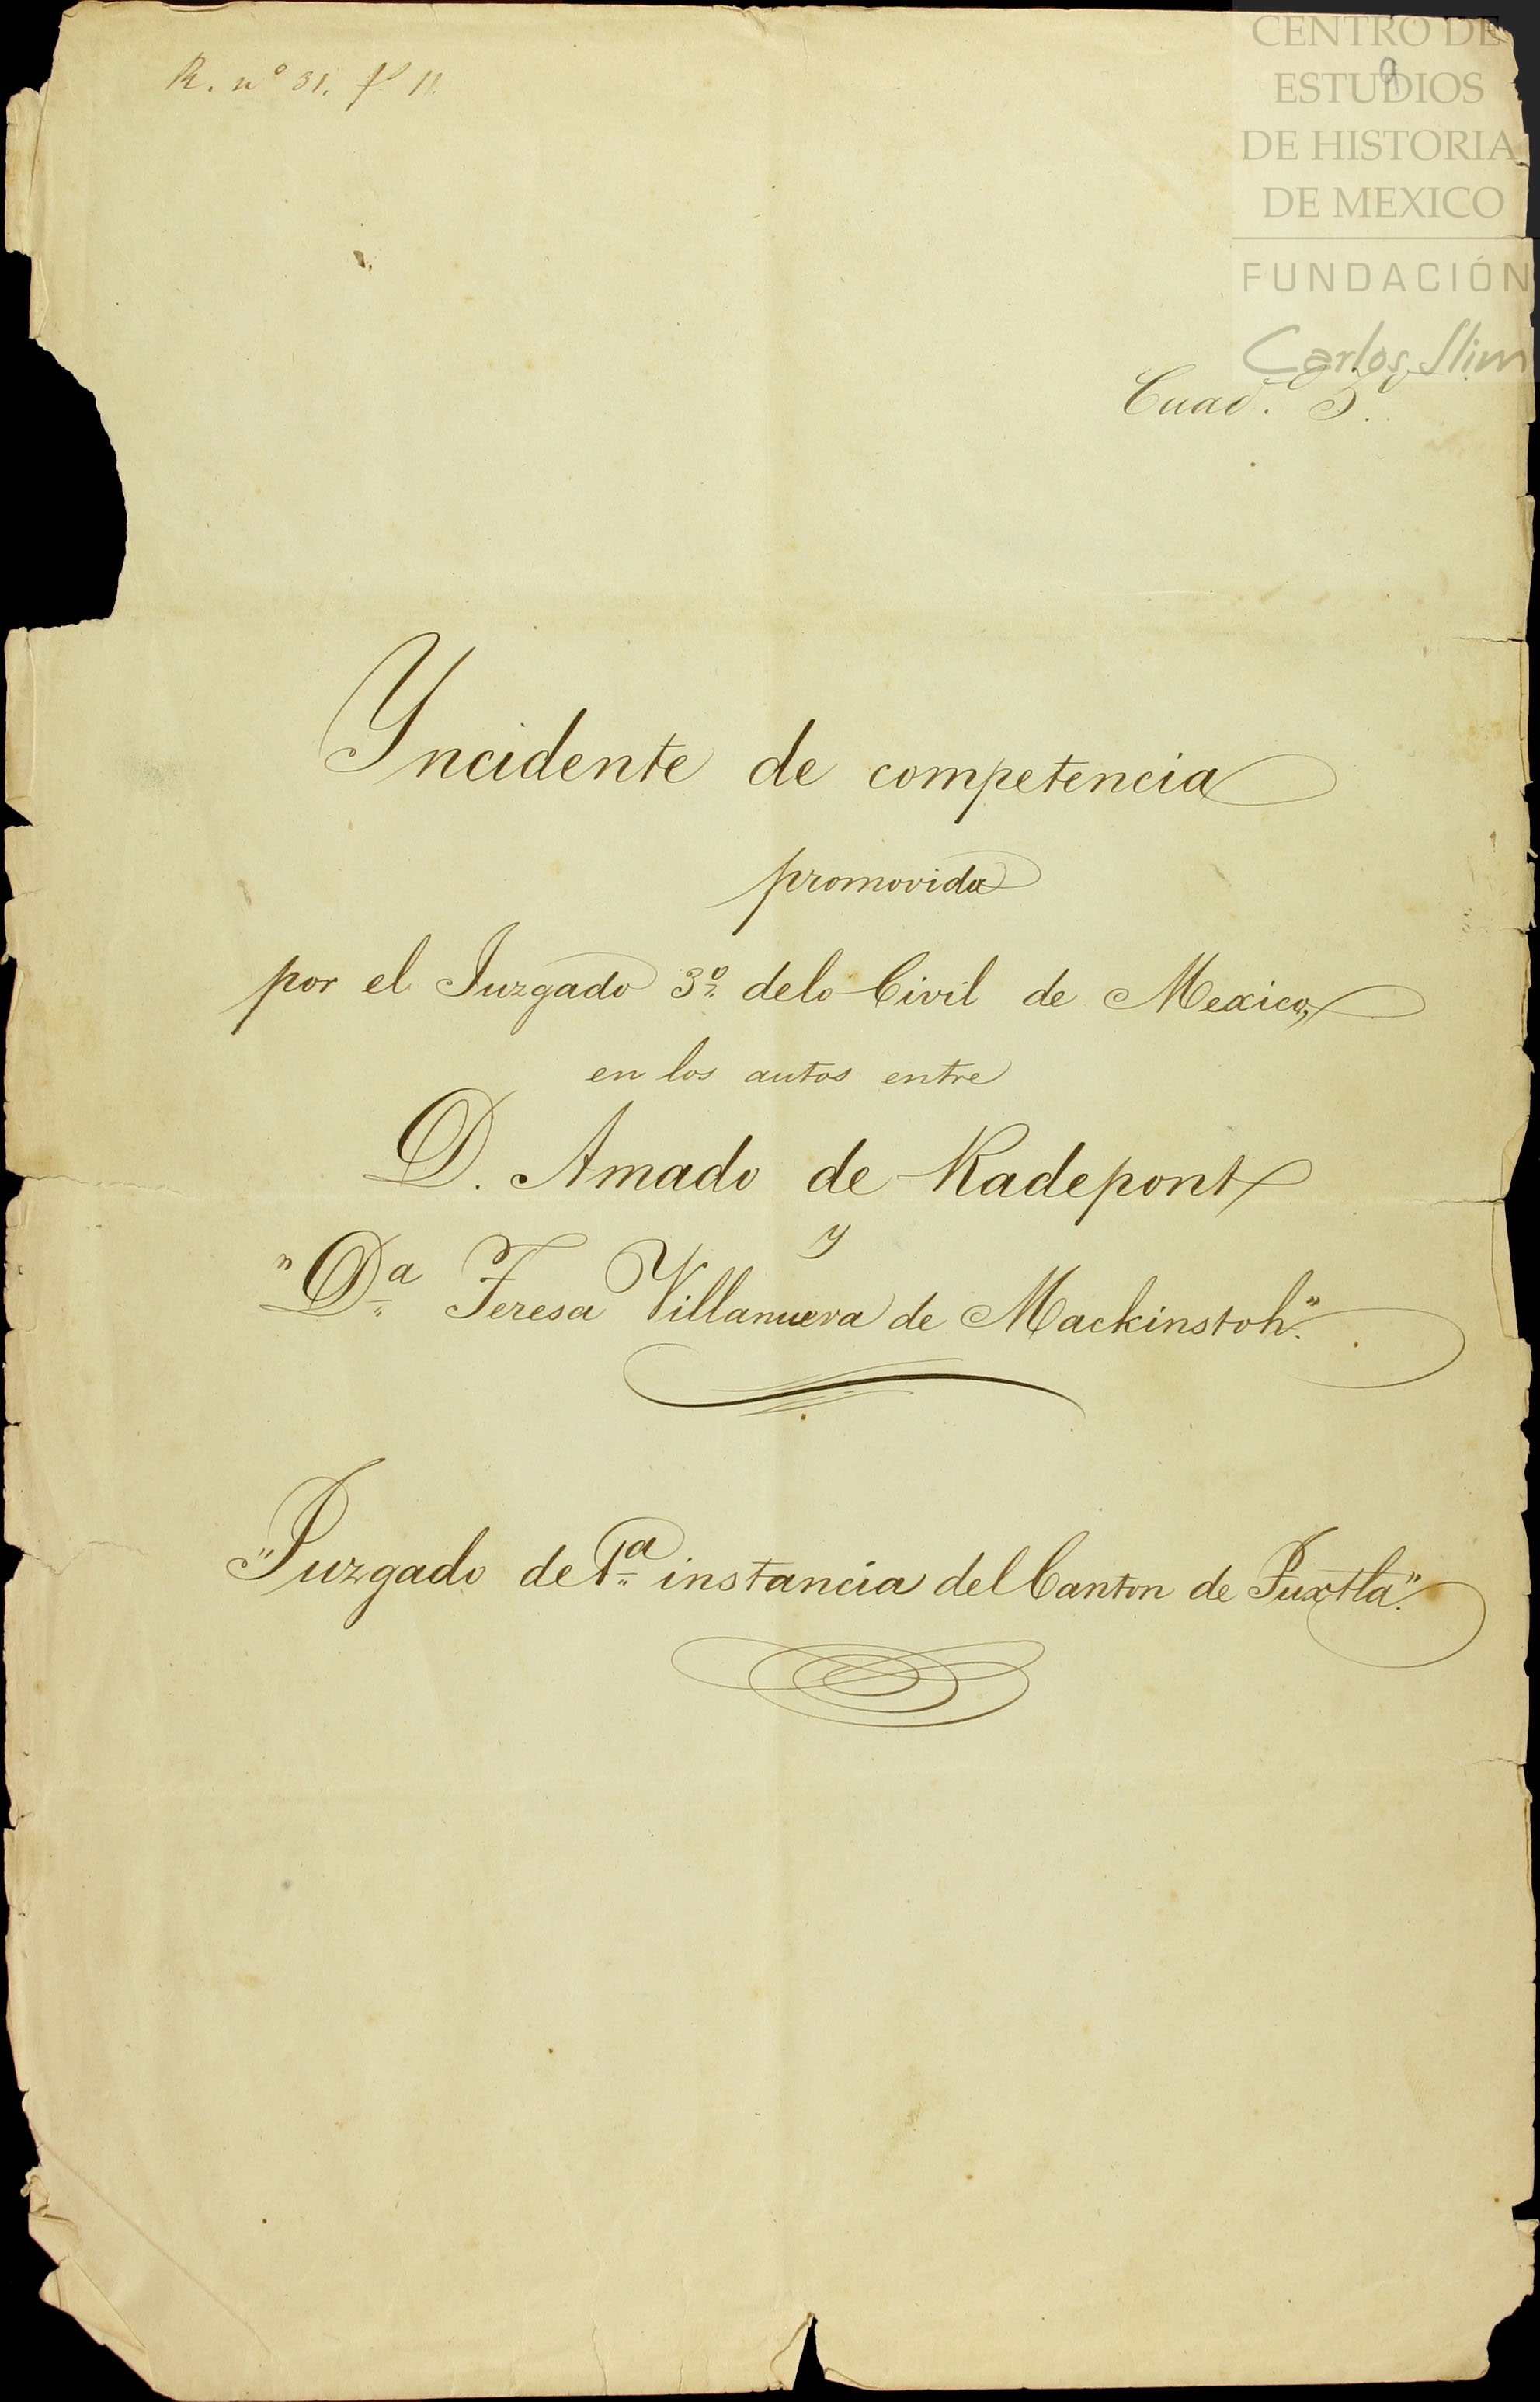 R. nº 31. fº 11.
CENTRO DE
ESTUDIOS
DE HISTORIA
DE MEXICO
FUNDACIÓN
Carlos Slim
Cuad. 3º.
Yncidente de competencia
promovida
por el Juzgado 3º delo Civil de Mexico,
en los autos entre
D. Amado de Radepont
y
"Dª Teresa Villanueva de Mackinstoh".
"Juzgado de 1ª instancia del Canton de Tuxtla".